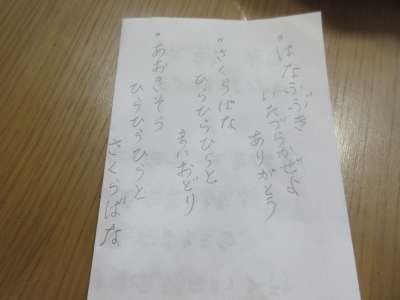 ・はなふぶき
いたづらかぜよ
ありがとう
・さくらばな
ひらひらひらと
まいおどり
・あおきそら
ひらひらひらと
さくらばな